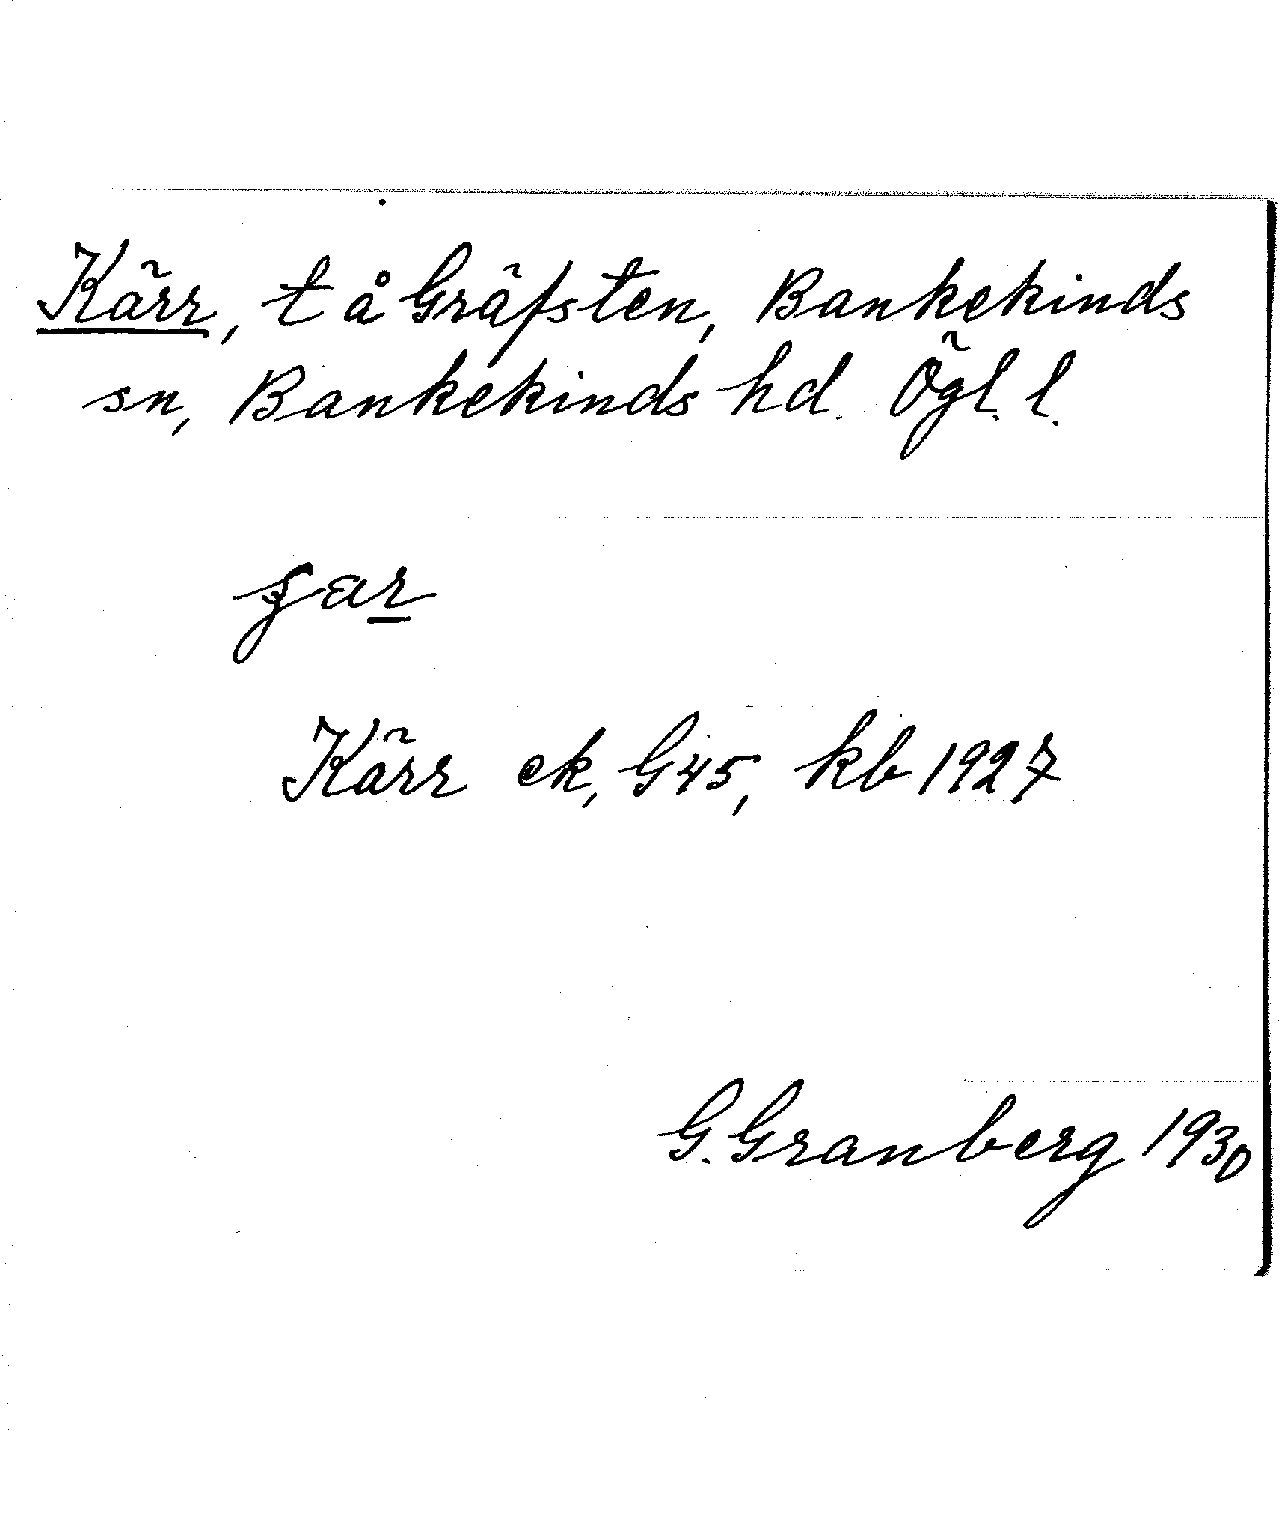 Kärr, t å Gräfsten, Bankekinds
sn, Bankekinds hd. Ögl. l.
Kärr ek, G45, kb 1927
G. Granberg 1930